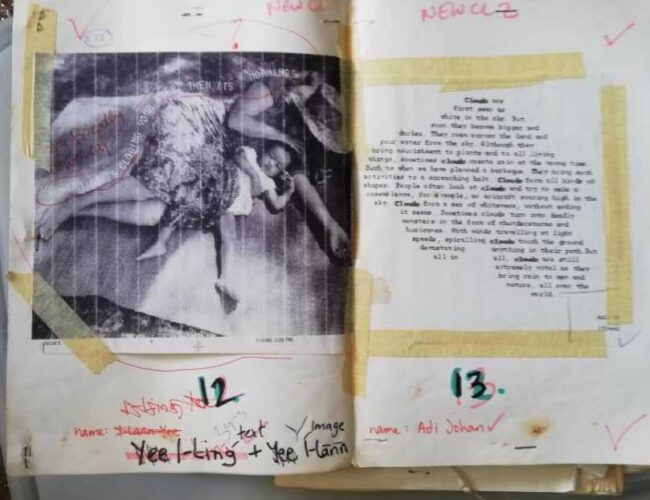 NEW CC
1.12
?
THEN ITS MORNING
12
name: Yee I-Ling + Yee I-Lann
text
Image
NEW CC Z
Clouds are
first seen as
white in the sky. But
soon they become bigger and
darker. They roam across the land and
pour water from the sky. Although they
bring nourishment to plants and to all living
things, sometimes clouds create rain at the wrong time.
Such as when we have planned a barbeque. They bring such
activities to a screeching halt. Clouds form all kinds of
shapes. People often look at clouds and try to make a
resemblance, for example, an aircraft soaring high in the
sky. Clouds form a sea of whiteness, without ending
it seems. Sometimes clouds turn into deadly
monsters in the form of thunderstorms and
hurricanes. With winds travelling at light
speeds, spiralling clouds touch the ground
devastating anything in their path. But
all in all, clouds are still
extremely vital as they
bring rain to men and
nature, all over the
world.
13.
name: Adi Johan